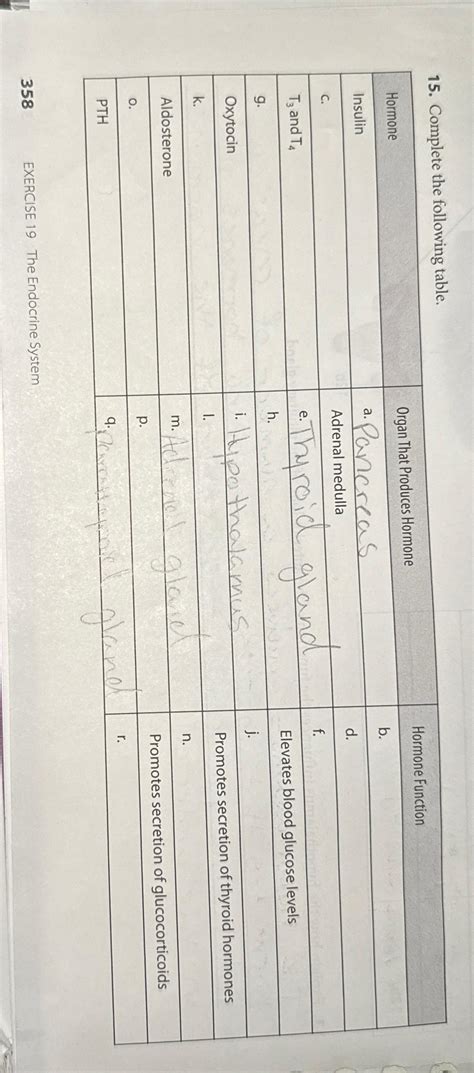 15. Complete the following table.
Hormone Organ That Produces Hormone Hormone Function
Insulin a. Pancreas b.
c. Adrenal medulla d.
T3 and T4 e. Thyroid gland f.
g. h. Elevates blood glucose levels
Oxytocin i. Hypothalamus j.
k. l. Promotes secretion of thyroid hormones
Aldosterone m. Adrenal gland n.
o. p. Promotes secretion of glucocorticoids
PTH q. gland r.
358 EXERCISE 19 The Endocrine System